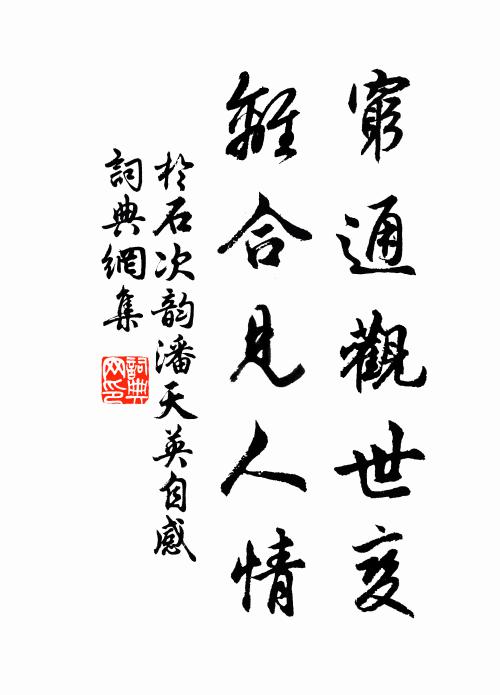 窮通觀世变
離合見人情
於石次韵潘天英自感
詞典網集
詞典网印